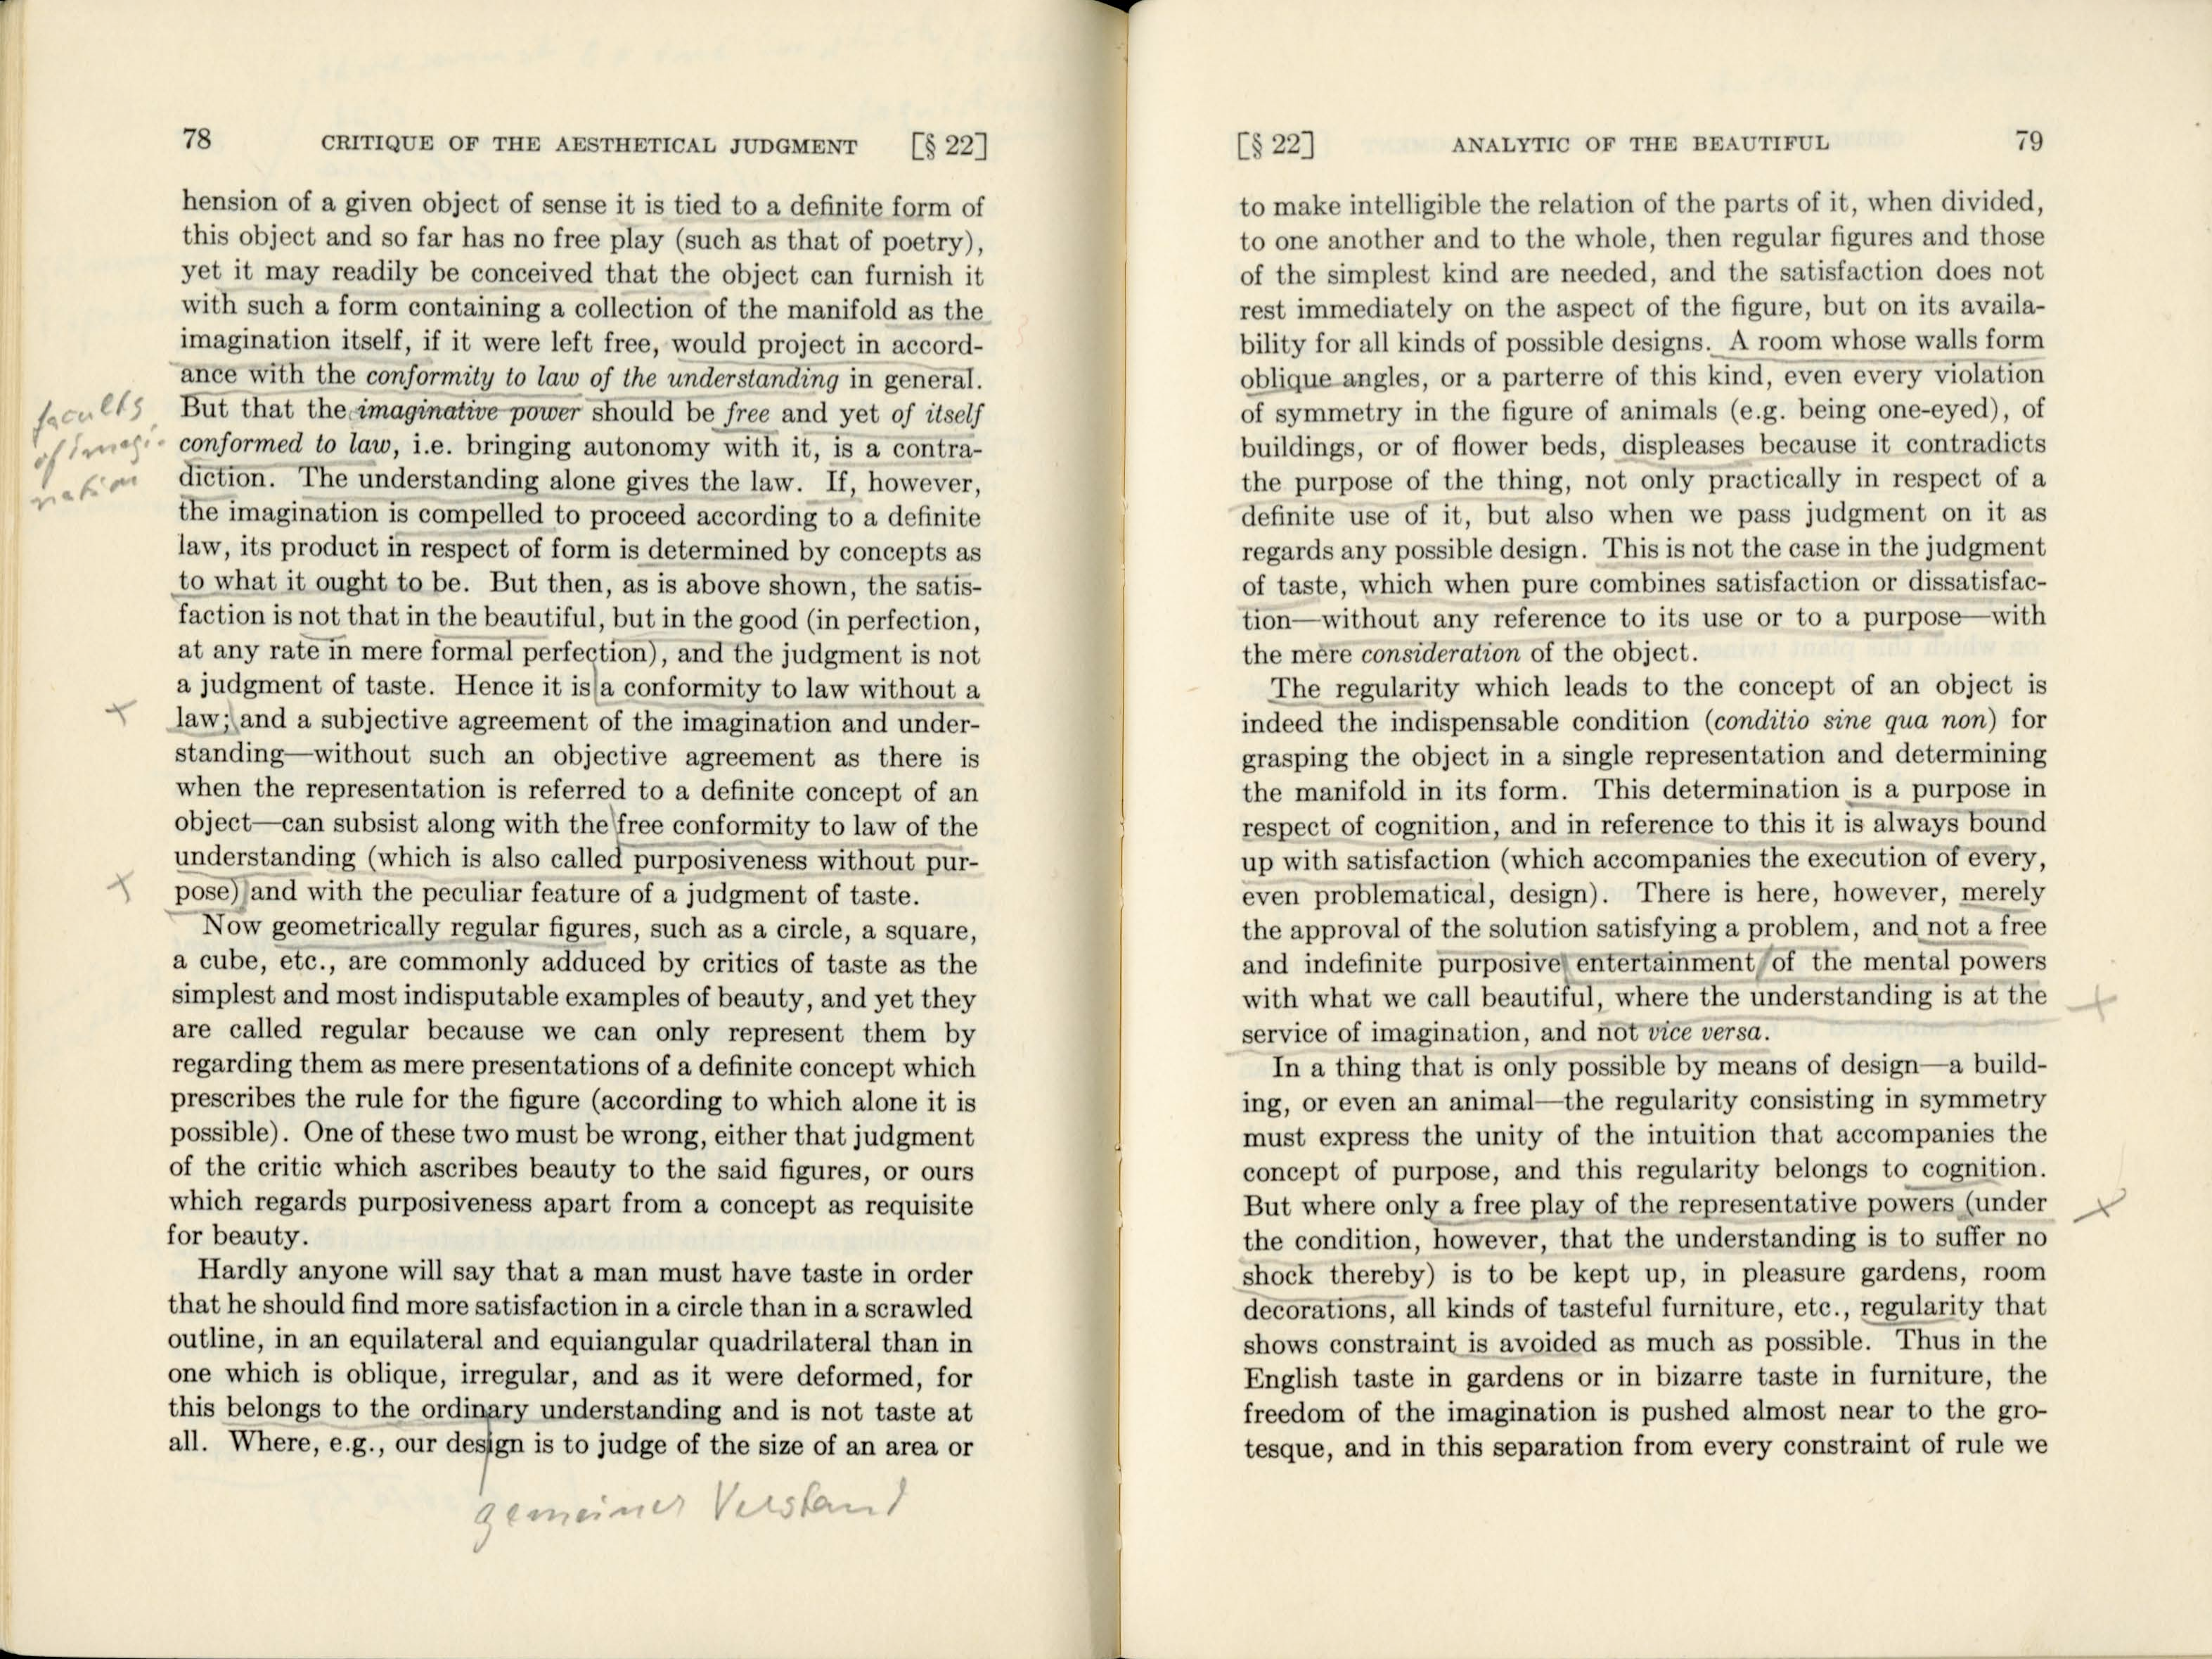 78 CRITIQUE OF THE AESTHETICAL JUDGMENT [§ 22]
hension of a given object of sense it is tied to a definite form of
this object and so far has no free play (such as that of poetry),
yet it may readily be conceived that the object can furnish it
with such a form containing a collection of the manifold as the
imagination itself, if it were left free, would project in accord-
ance with the conformity to law of the understanding in general.
But that the imaginative power should be free and yet of itself
conformed to law, i.e. bringing autonomy with it, is a contra-
diction. The understanding alone gives the law. If, however,
the imagination is compelled to proceed according to a definite
law, its product in respect of form is determined by concepts as
to what it ought to be. But then, as is above shown, the satis-
faction is not that in the beautiful, but in the good (in perfection,
at any rate in mere formal perfection), and the judgment is not
a judgment of taste. Hence it is a conformity to law without a
law; and a subjective agreement of the imagination and under-
standing—without such an objective agreement as there is
when the representation is referred to a definite concept of an
object—can subsist along with the free conformity to law of the
understanding (which is also called purposiveness without pur-
pose) and with the peculiar feature of a judgment of taste.
Now geometrically regular figures, such as a circle, a square,
a cube, etc., are commonly adduced by critics of taste as the
simplest and most indisputable examples of beauty, and yet they
are called regular because we can only represent them by
regarding them as mere presentations of a definite concept which
prescribes the rule for the figure (according to which alone it is
possible). One of these two must be wrong, either that judgment
of the critic which ascribes beauty to the said figures, or ours
which regards purposiveness apart from a concept as requisite
for beauty.
Hardly anyone will say that a man must have taste in order
that he should find more satisfaction in a circle than in a scrawled
outline, in an equilateral and equiangular quadrilateral than in
one which is oblique, irregular, and as it were deformed, for
this belongs to the ordinary understanding and is not taste at
all. Where, e.g., our design is to judge of the size of an area or
faculty
of imagi-
nation
gemeiner Verstand
[§ 22] ANALYTIC OF THE BEAUTIFUL 79
to make intelligible the relation of the parts of it, when divided,
to one another and to the whole, then regular figures and those
of the simplest kind are needed, and the satisfaction does not
rest immediately on the aspect of the figure, but on its availa-
bility for all kinds of possible designs. A room whose walls form
oblique angles, or a parterre of this kind, even every violation
of symmetry in the figure of animals (e.g. being one-eyed), of
buildings, or of flower beds, displeases because it contradicts
the purpose of the thing, not only practically in respect of a
definite use of it, but also when we pass judgment on it as
regards any possible design. This is not the case in the judgment
of taste, which when pure combines satisfaction or dissatisfac-
tion—without any reference to its use or to a purpose—with
the mere consideration of the object.
The regularity which leads to the concept of an object is
indeed the indispensable condition (conditio sine qua non) for
grasping the object in a single representation and determining
the manifold in its form. This determination is a purpose in
respect of cognition, and in reference to this it is always bound
up with satisfaction (which accompanies the execution of every,
even problematical, design). There is here, however, merely
the approval of the solution satisfying a problem, and not a free
and indefinite purposive entertainment of the mental powers
with what we call beautiful, where the understanding is at the
service of imagination, and not vice versa.
In a thing that is only possible by means of design—a build-
ing, or even an animal—the regularity consisting in symmetry
must express the unity of the intuition that accompanies the
concept of purpose, and this regularity belongs to cognition.
But where only a free play of the representative powers (under
the condition, however, that the understanding is to suffer no
shock thereby) is to be kept up, in pleasure gardens, room
decorations, all kinds of tasteful furniture, etc., regularity that
shows constraint is avoided as much as possible. Thus in the
English taste in gardens or in bizarre taste in furniture, the
freedom of the imagination is pushed almost near to the gro-
tesque, and in this separation from every constraint of rule we